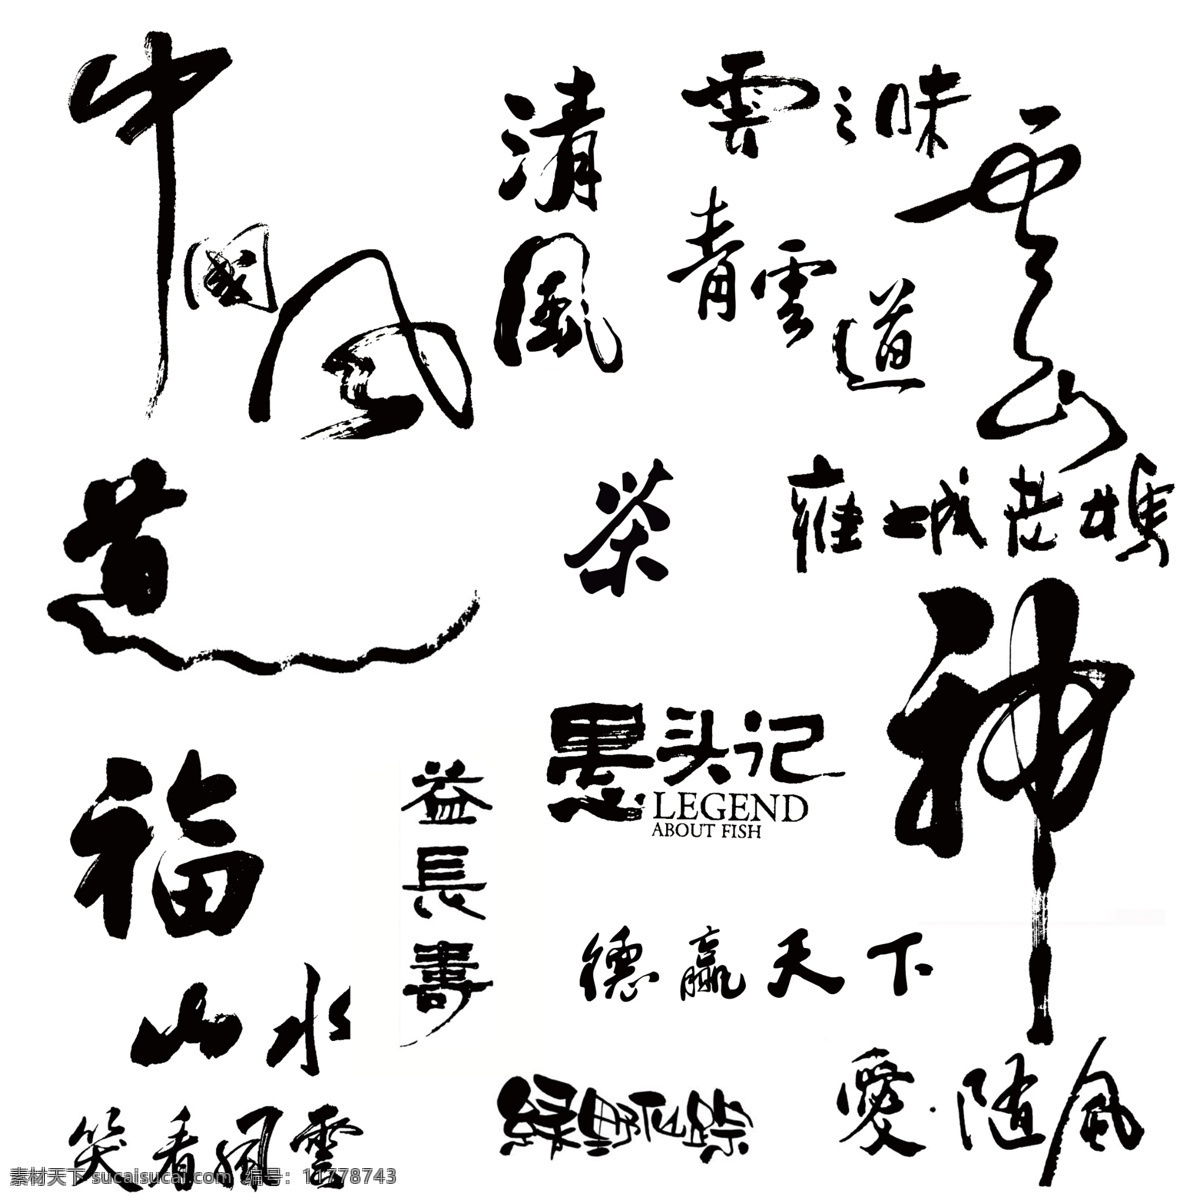 中國风
清風
雲之味
青雲道
云山
道
茶
雍城老媽
神
福
益長壽
墨头记
LEGEND
ABOUT FISH
山水
德赢天下
笑看風雲
綠野仙踪
愛·随風
素材天下 sucaisucai.com 编号：11778743